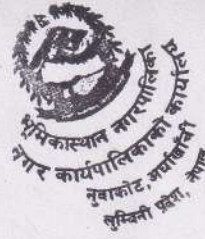 भूमिकास्थान नगरपालिका
नगर कार्यपालिकाको कार्यालय
नुवाकोट, अर्घाखाँची
लुम्बिनी प्रदेश, नेपाल